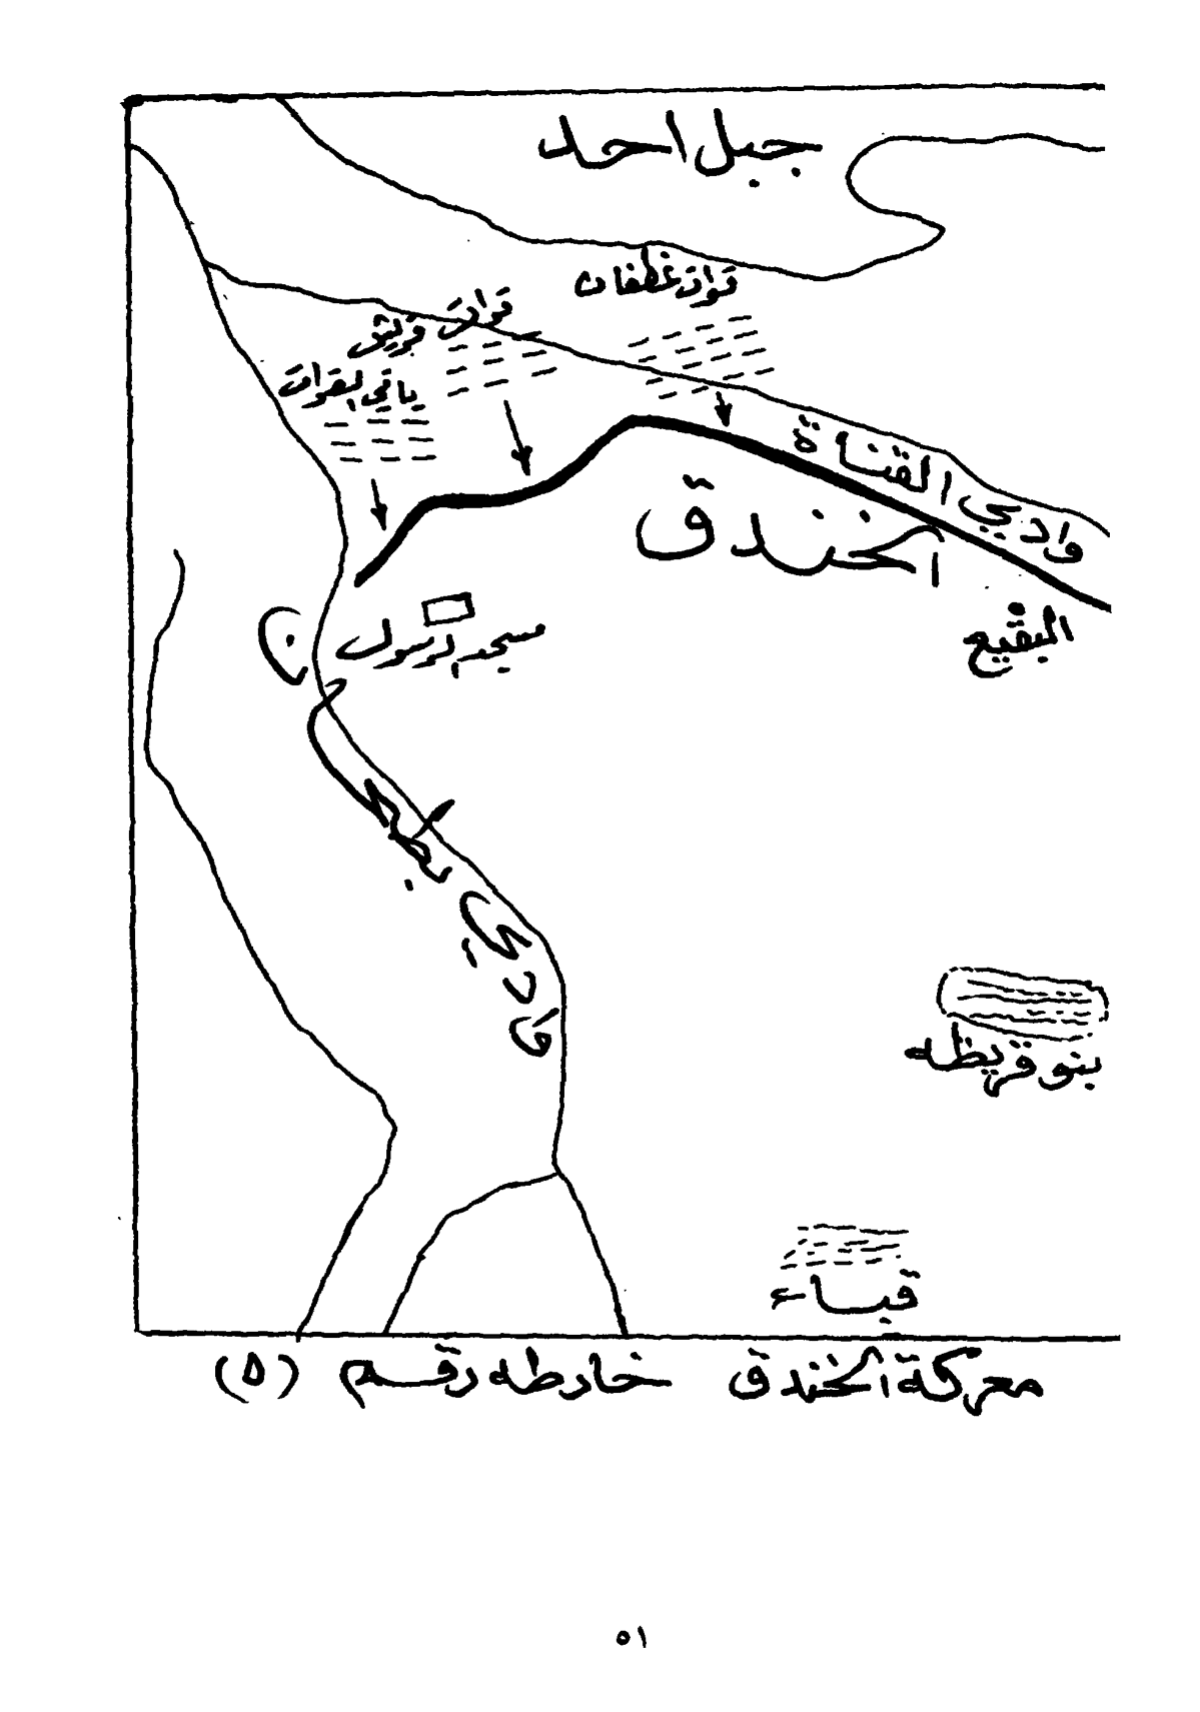 جبل احد
قوات غطفان
قوات قريش
باقي القوات
وادي القناة
الخندق
البقيع
مسجد الرسول
وادي بطحان
بنو قريظه
قباء
معركة الخندق خارطه رقم (٥)
٥١